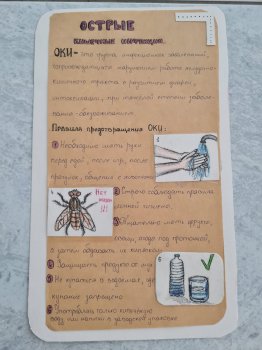 ОСТРЫЕ
кишечные инфекции.
ОКИ - это группа инфекционных заболеваний,
сопровождающихся нарушением работы желудочно-
кишечного тракта с развитием диареи,
интоксикации, при тяжелом течении заболе
вания - обезвоживания.
Правила предотвращения ОКИ:
1 Необходимо мыть руки
перед едой, после игр, после
прогулок, общения с животными
1
Нет
мухам
!!!
2 Строго соблюдать правила
личной гигиены.
3 Обязательно мыть фрукты,
овощи, ягоды под проточной,
а затем обдавать их кипятком
4 Защищать продукты от мух
5 Не купаться в водоемах, где
купание запрещено
6
6 Употреблять только кипяченую
воду или напитки в заводской упаковке